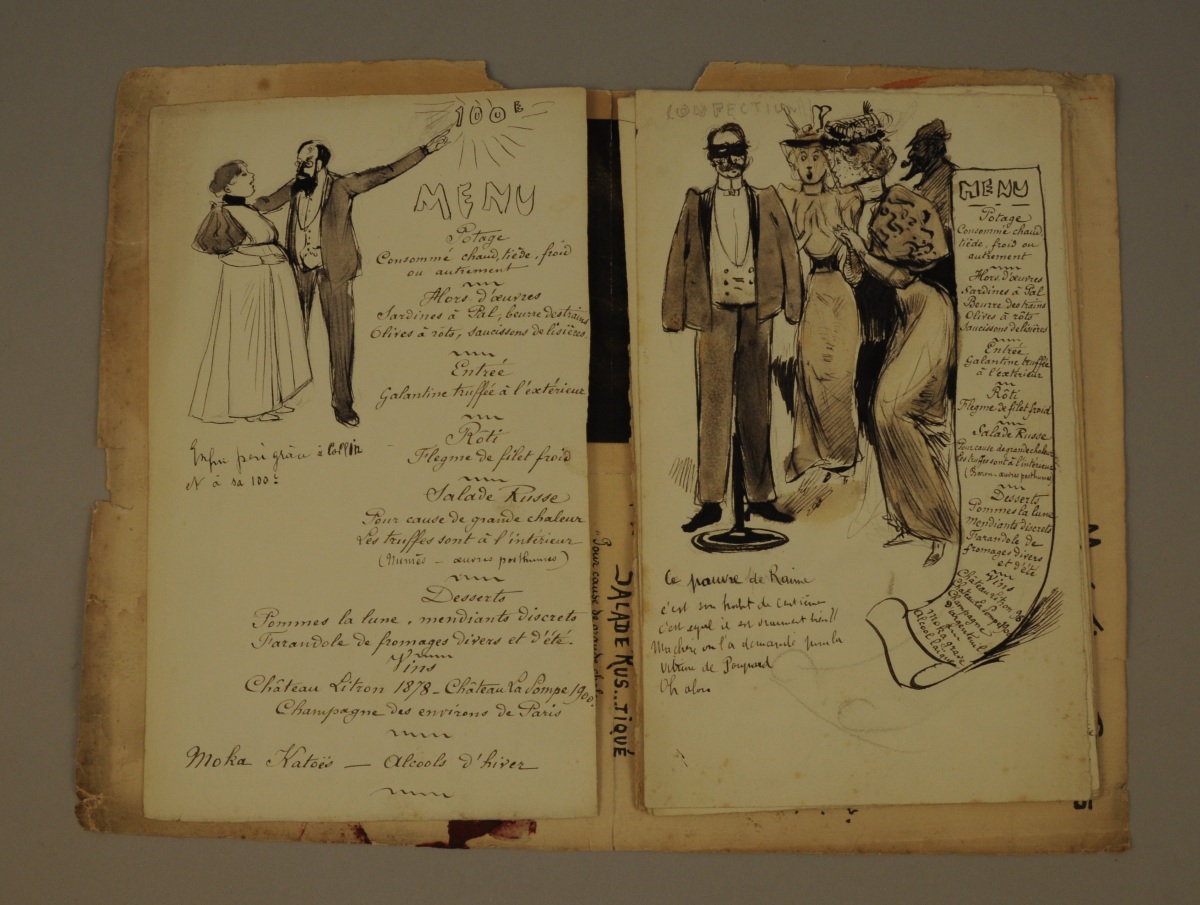 100E
MENU
Potage
Consommé chaud, tiède, froid
ou autrement
Hors d'œuvres
Sardines à Pal, beurre des trains
Olives à rôts, saucissons de lisières.
Entrée
Galantine truffée à l'extérieur
Rôti
Flegme de filet froid
Salade Russe
Pour cause de grande chaleur
Les truffes sont à l'intérieur
œuvres posthumes)
Desserts
Pommes la lune, mendiants discrets
Farandole de fromages divers et d'été.
Vins
Château Litron 1878 - Château La Pompe 1900.
Champagne des environs de Paris
Moka Katoës — Alcools d'hiver
Enfin grâce à
à sa 100e
"Pour cause de grande
SALADE RUS..TIQUÉ
CONFECTION
MENU
Potage
Consommé chaud,
tiède, froid ou
autrement
Hors d'œuvres
Sardines à Pal.
Beurre des trains
Olives à rôts
Saucissons de lisières
Entrée
Galantine truffée
à l'extérieur
Rôti
Flegme de filet froid
Salade Russe
Pour cause de grande chaleur
Les truffes sont à l'intérieur
œuvres posthumes)
Desserts
Pommes la lune
mendiants discrets
Farandole de
fromages divers
et d'été
Vins
Château Litron 96
Château la Pompe 1900
Champagne
d'argenteuil
Moka gravé
Alcool laïque
Ce pauvre de Raime
c'est son habit de
c'est égal il est vraiment bien!!
on l'a demandé pour la
vitrine de
Oh alors